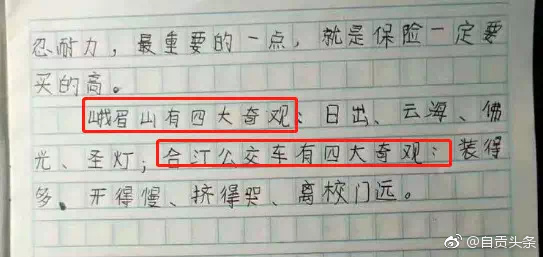 忍耐力，最重要的一点，就是保险一定要
买的高。
峨眉山有四大奇观：日出、云海、佛
光、圣灯；合江公交车有四大奇观：装得
多、开得慢、挤得哭、离校门远。
@自贡头条